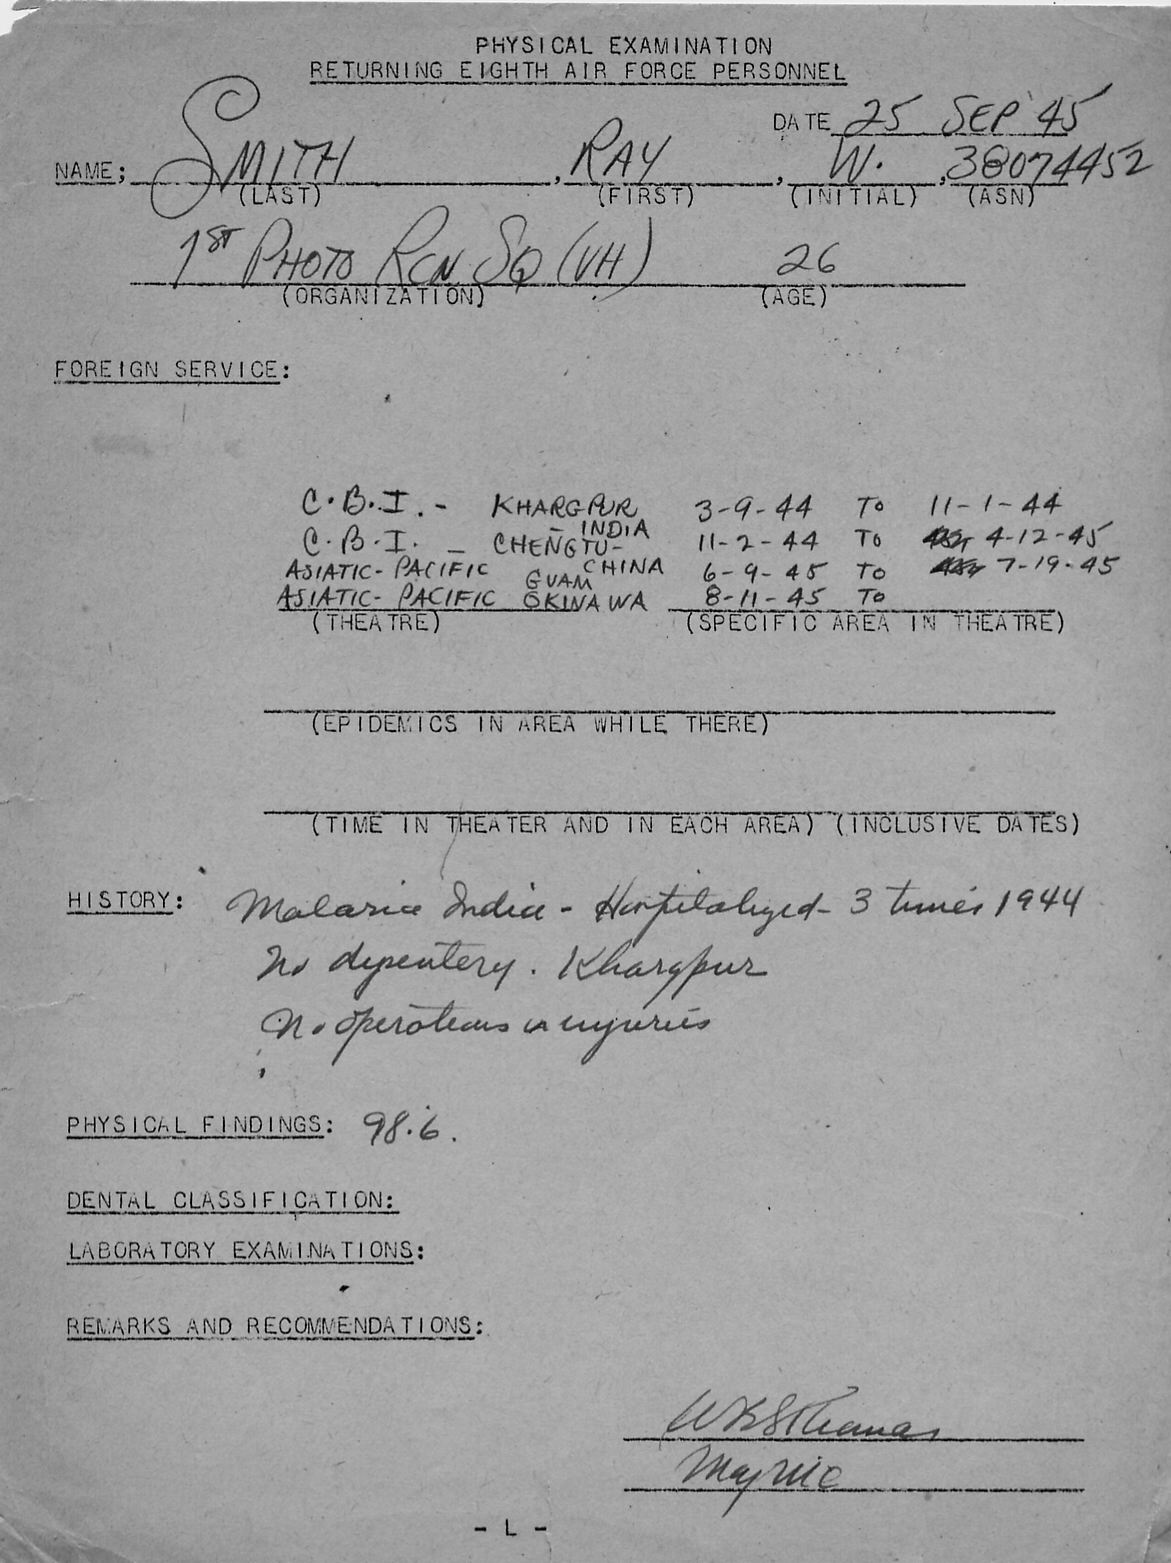 PHYSICAL EXAMINATION
RETURNING EIGHTH AIR FORCE PERSONNEL
DATE 25 SEP '45
NAME; SMITH, RAY, W., 38074452
(LAST) (FIRST) (INITIAL) (ASN)
1ST PHOTO RCN SQ (VH) 26
(ORGANIZATION) (AGE)
FOREIGN SERVICE:
C.B.I. - KHARGPUR - INDIA 3-9-44 TO 11-1-44
C.B.I. - CHENGTU - CHINA 11-2-44 TO 4-12-45
ASIATIC-PACIFIC GUAM 6-9-45 TO 7-19-45
ASIATIC-PACIFIC OKINAWA 8-11-45 TO
(THEATRE) (SPECIFIC AREA IN THEATRE)
(EPIDEMICS IN AREA WHILE THERE)
(TIME IN THEATER AND IN EACH AREA) (INCLUSIVE DATES)
HISTORY: Malaria India - Hospitalized - 3 times 1944
No dysentery. Khargpur
No operations or injuries
PHYSICAL FINDINGS: 98.6.
DENTAL CLASSIFICATION:
LABORATORY EXAMINATIONS:
REMARKS AND RECOMMENDATIONS:
Maj MC
- L -